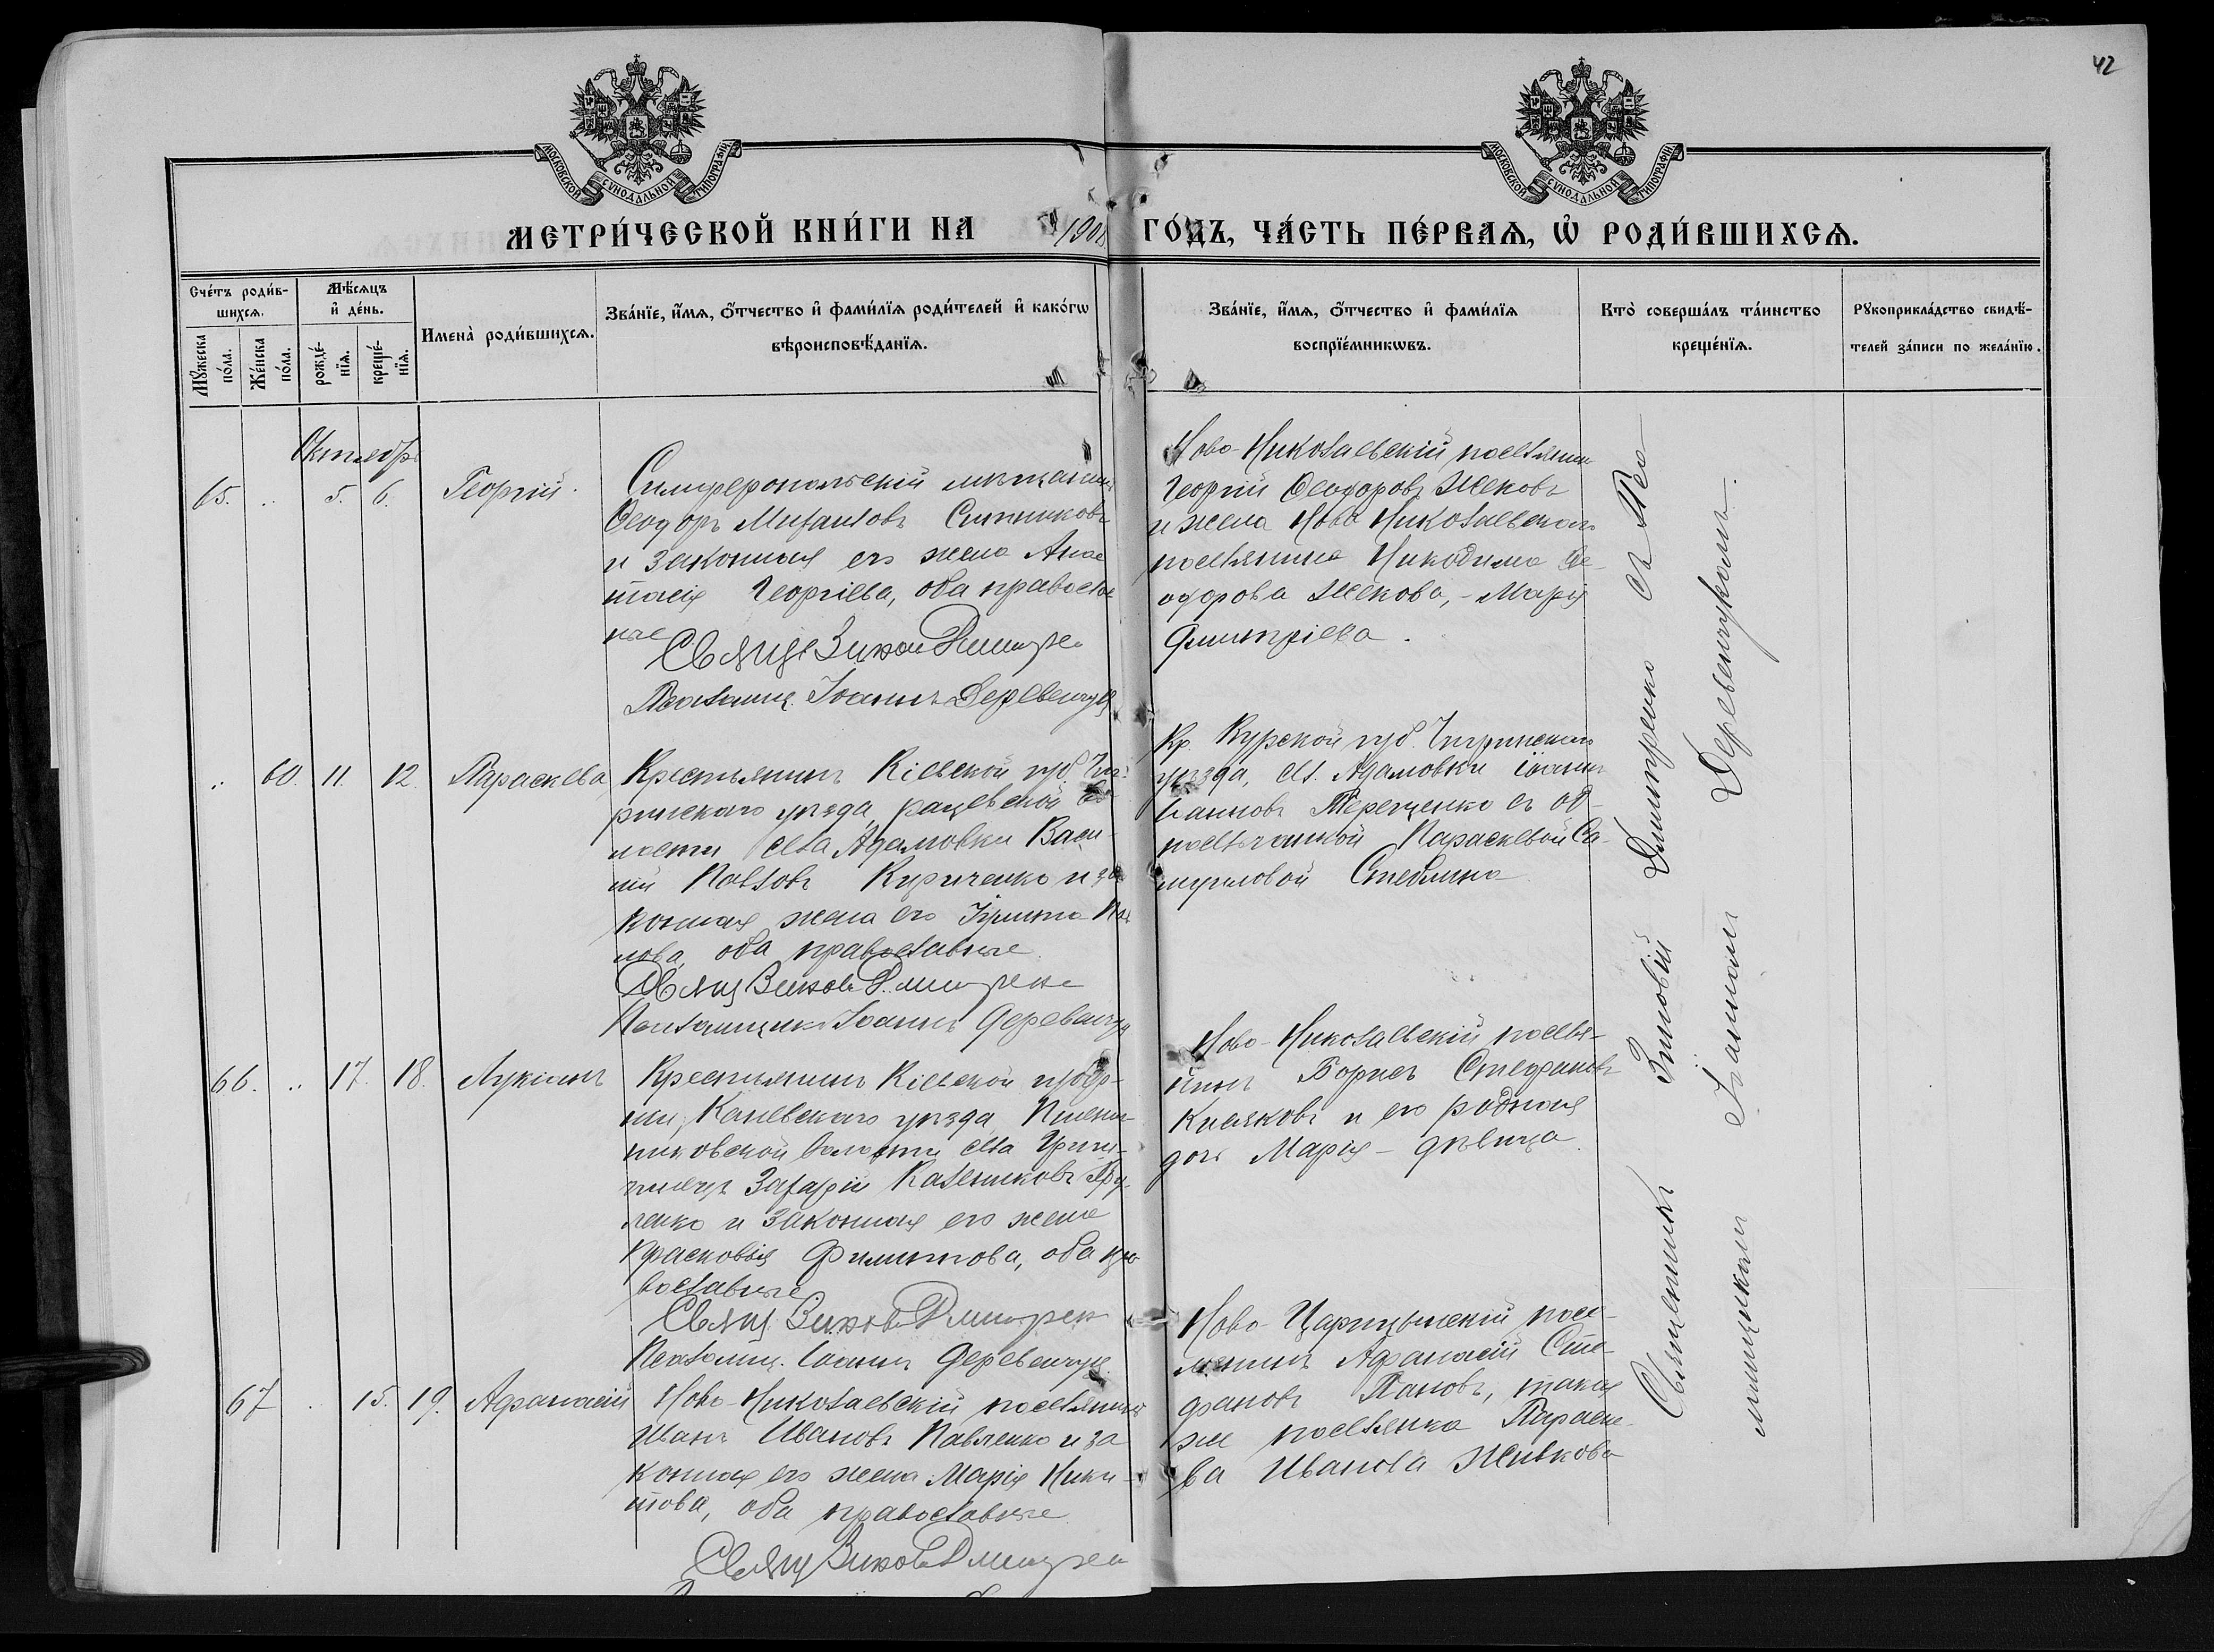 42
МОСКОВСКОЙ СѴНОДАЛЬНОЙ ТИПОГРАФІИ
МОСКОВСКОЙ СѴНОДАЛЬНОЙ ТИПОГРАФІИ
МЕТРИ́ЧЕСКОЙ КНИ́ГИ НА 1908 ГО́ДЪ, ЧА́СТЬ ПЕ́РВАѦ, Ѡ҆ РОДИ́ВШИХСѦ.
Сче́тъ роди́в-
шихсѧ.
Мꙋ́жеска по́ла.
Же́нска по́ла.
Мѣ́сѧцъ и҆ де́нь.
рожде́-
нїѧ.
креще́-
нїѧ.
Имена̀ роди́вшихсѧ.
Зва́нїе, и҆́мѧ, ѻ҆́тчество и҆ фами́лїѧ роди́телей и҆ како́гѡ
вѣроисповѣ́данїѧ.
Зва́нїе, и҆́мѧ, ѻ҆́тчество и҆ фами́лїѧ
воспрїе́мникѡвъ.
Кто̀ соверша́лъ та́инство
креще́нїѧ.
Рꙋкоприкла́дство свидѣ́-
телей за́писи по жела́нїю.
Октябрь
65. 5. 6. Георгій.
Симферопольскій мѣщанинъ
Ѳеодоръ Михаиловъ Ситниковъ
и законная его жена Анас
тасія Георгіева, оба православ
ные
Священ Зиновій Дмитрен
Псаломщ. Іоаннъ Деревенчук
Ново-Николаевскій поселянин
Георгій Ѳеодоровъ Жековъ
и жена Ново Николаевскаго
поселянина Никодима Ѳе-
одорова Жекова, - Марія
Димитріева.
60. 11. 12. Параскева
Крестьянинъ Кіевской губ. Чиг
ринскаго уѣзда,
ности села Адамовки Васи-
лій Павловъ Кириченко и за
конная жена его Ирина
нова, оба православные
Свящ Зиновій Дмитренк
Псаломщикъ Іоаннъ Деревенчук
Кр. Курской губ. Чигринскаго
уѣзда, сел. Адамовки Іоаннъ
Іоанновъ Терещенко съ од-
посельчанкой Параскевой Са-
муиловой Стеблина
66. 17. 18. Лукіанъ
Крестьянинъ Кіевской губер-
ніи, Каневскаго уѣзда,
никовской волости села
Захарій
ленко и законная его жена
Прасковья Филиппова, оба пра
вославные
Свящ. Зиновій Дмитрен
Псаломщ. Іоаннъ Деревенчук
Ново-Николаевскій поселя-
нинъ Борисъ Стефановъ
Кисяковъ и его родная
дочь Марія - дѣвица.
67 15. 19. Афанасій
Ново-Николаевскій поселянинъ
Иванъ Ивановъ Павленко и за
конная его жена Марія Ники-
това, оба православные
Свящ Зиновій Дмитрен
Ново-Царицынскій посе-
лянинъ Афанасій Сте-
фановъ Пановъ, такая
же поселянка Параске-
ва Иванова Живкова
Священникъ Зиновій Дмитренко съ Пса-
ломщикомъ Іоанномъ Деревенчукомъ.